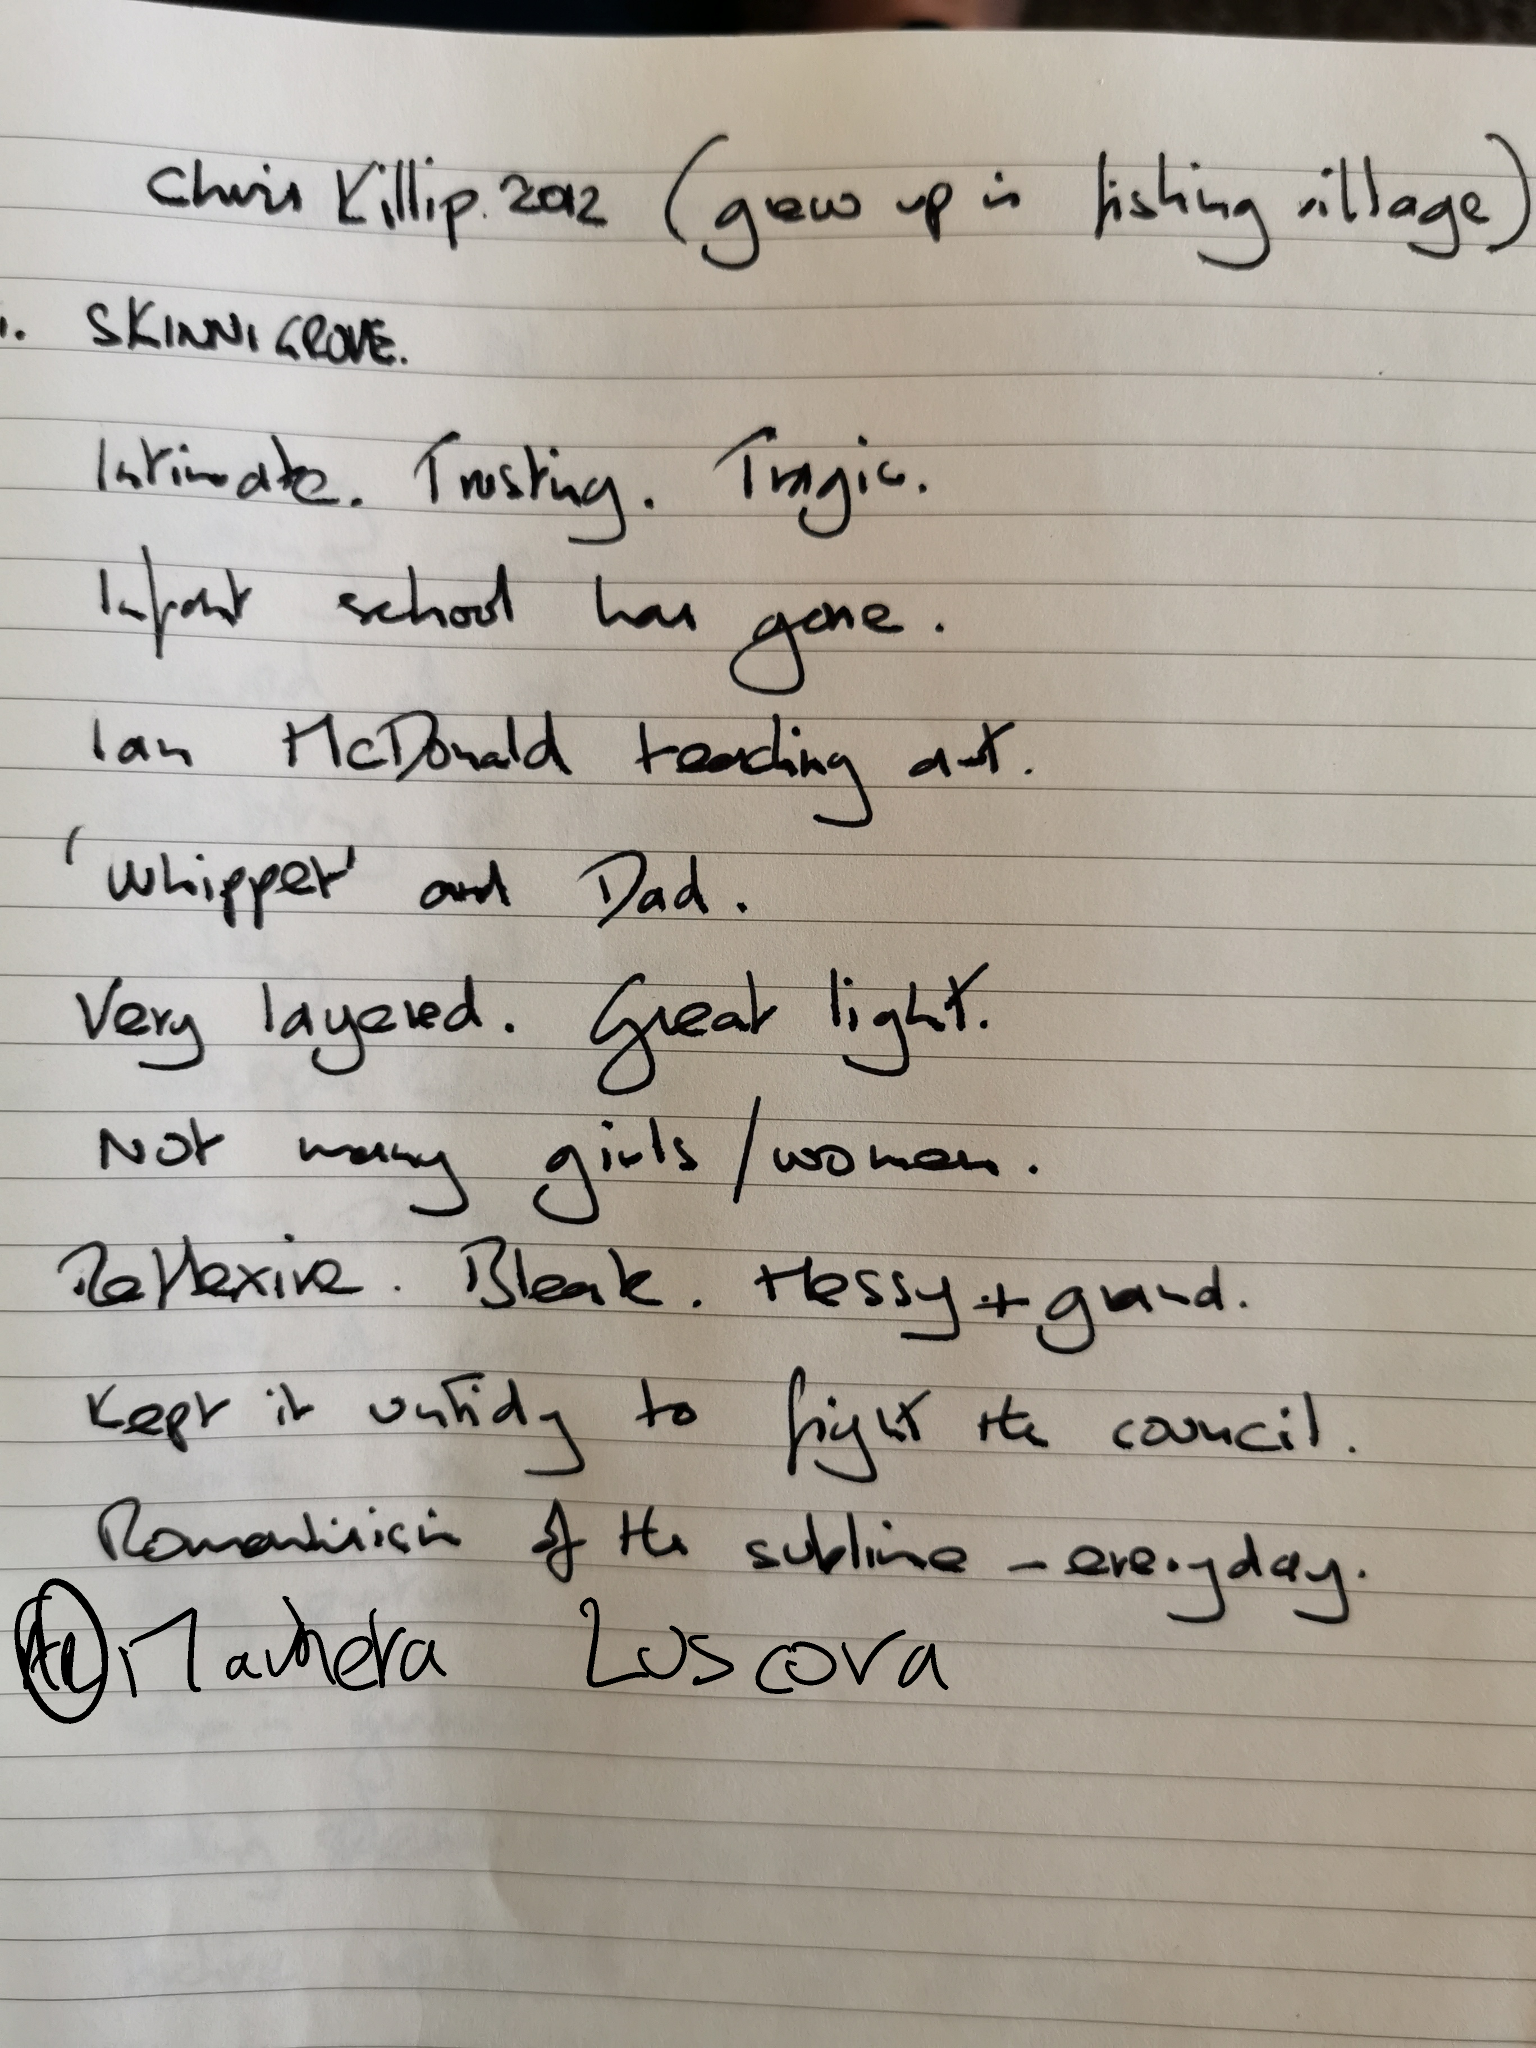 Chris Killip. 2012 (grew up in fishing village)
. SKINNIGROVE.
Intimate. Trusting. Tragic.
Infant school has gone.
Ian McDonald teaching art.
'Whippet' and Dad.
Very layered. Great light.
Not many girls/women.
Reflexive. Bleak. Messy + grand.
Kept it untidy to fight the council.
Romanticism of the sublime - everyday.
Luscova